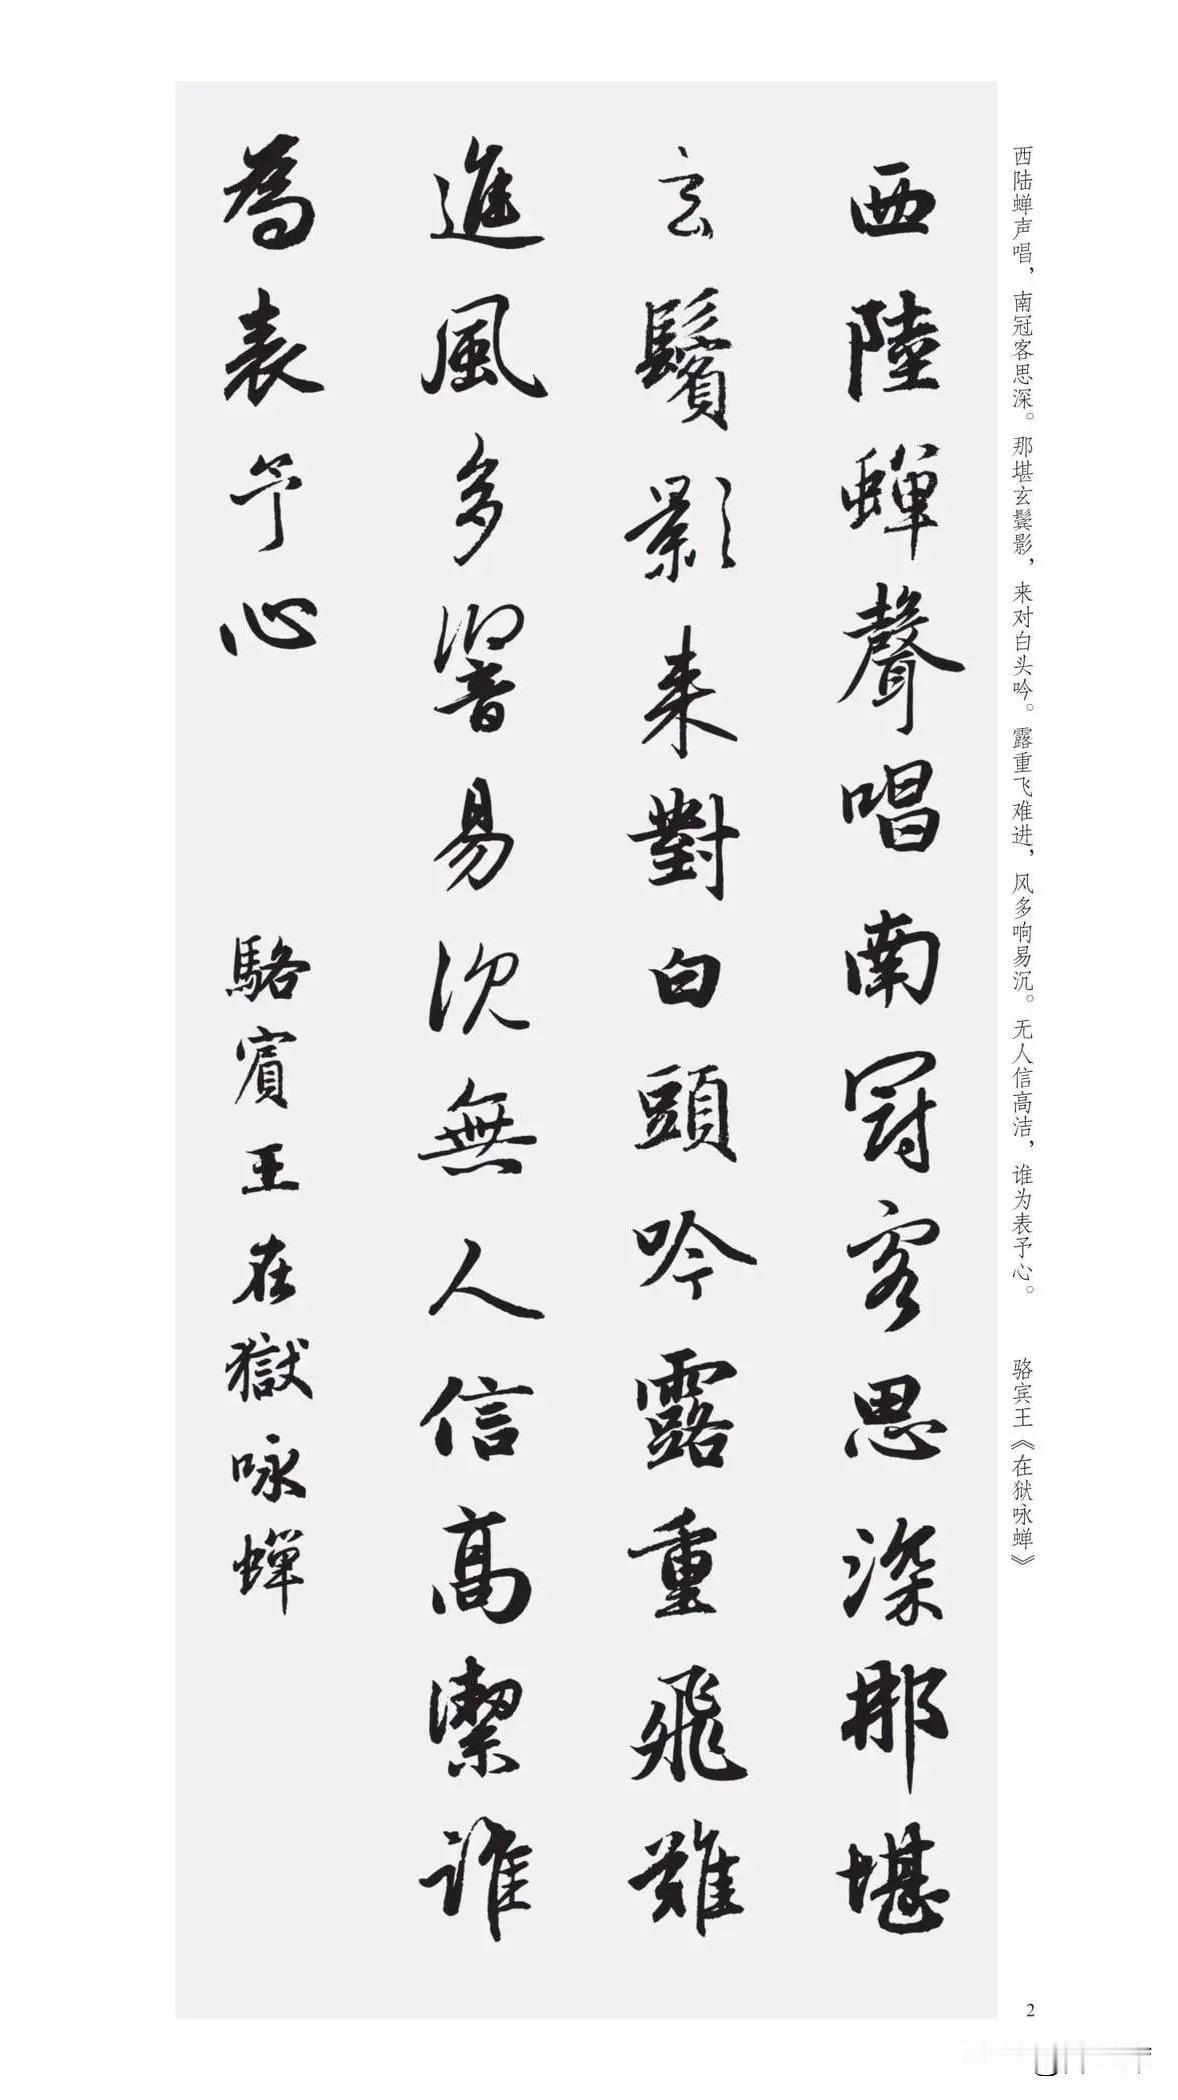 西陆蝉声唱，南冠客思深。那堪玄鬓影，来对白头吟。露重飞难进，风多响易沉。无人信高洁，谁为表予心。　骆宾王《在狱咏蝉》
西陸蟬聲唱南冠客思深那堪
玄鬢影来對白頭吟露重飛難
進風多響易沉無人信高潔誰
為表予心　駱賓王在獄咏蟬
2